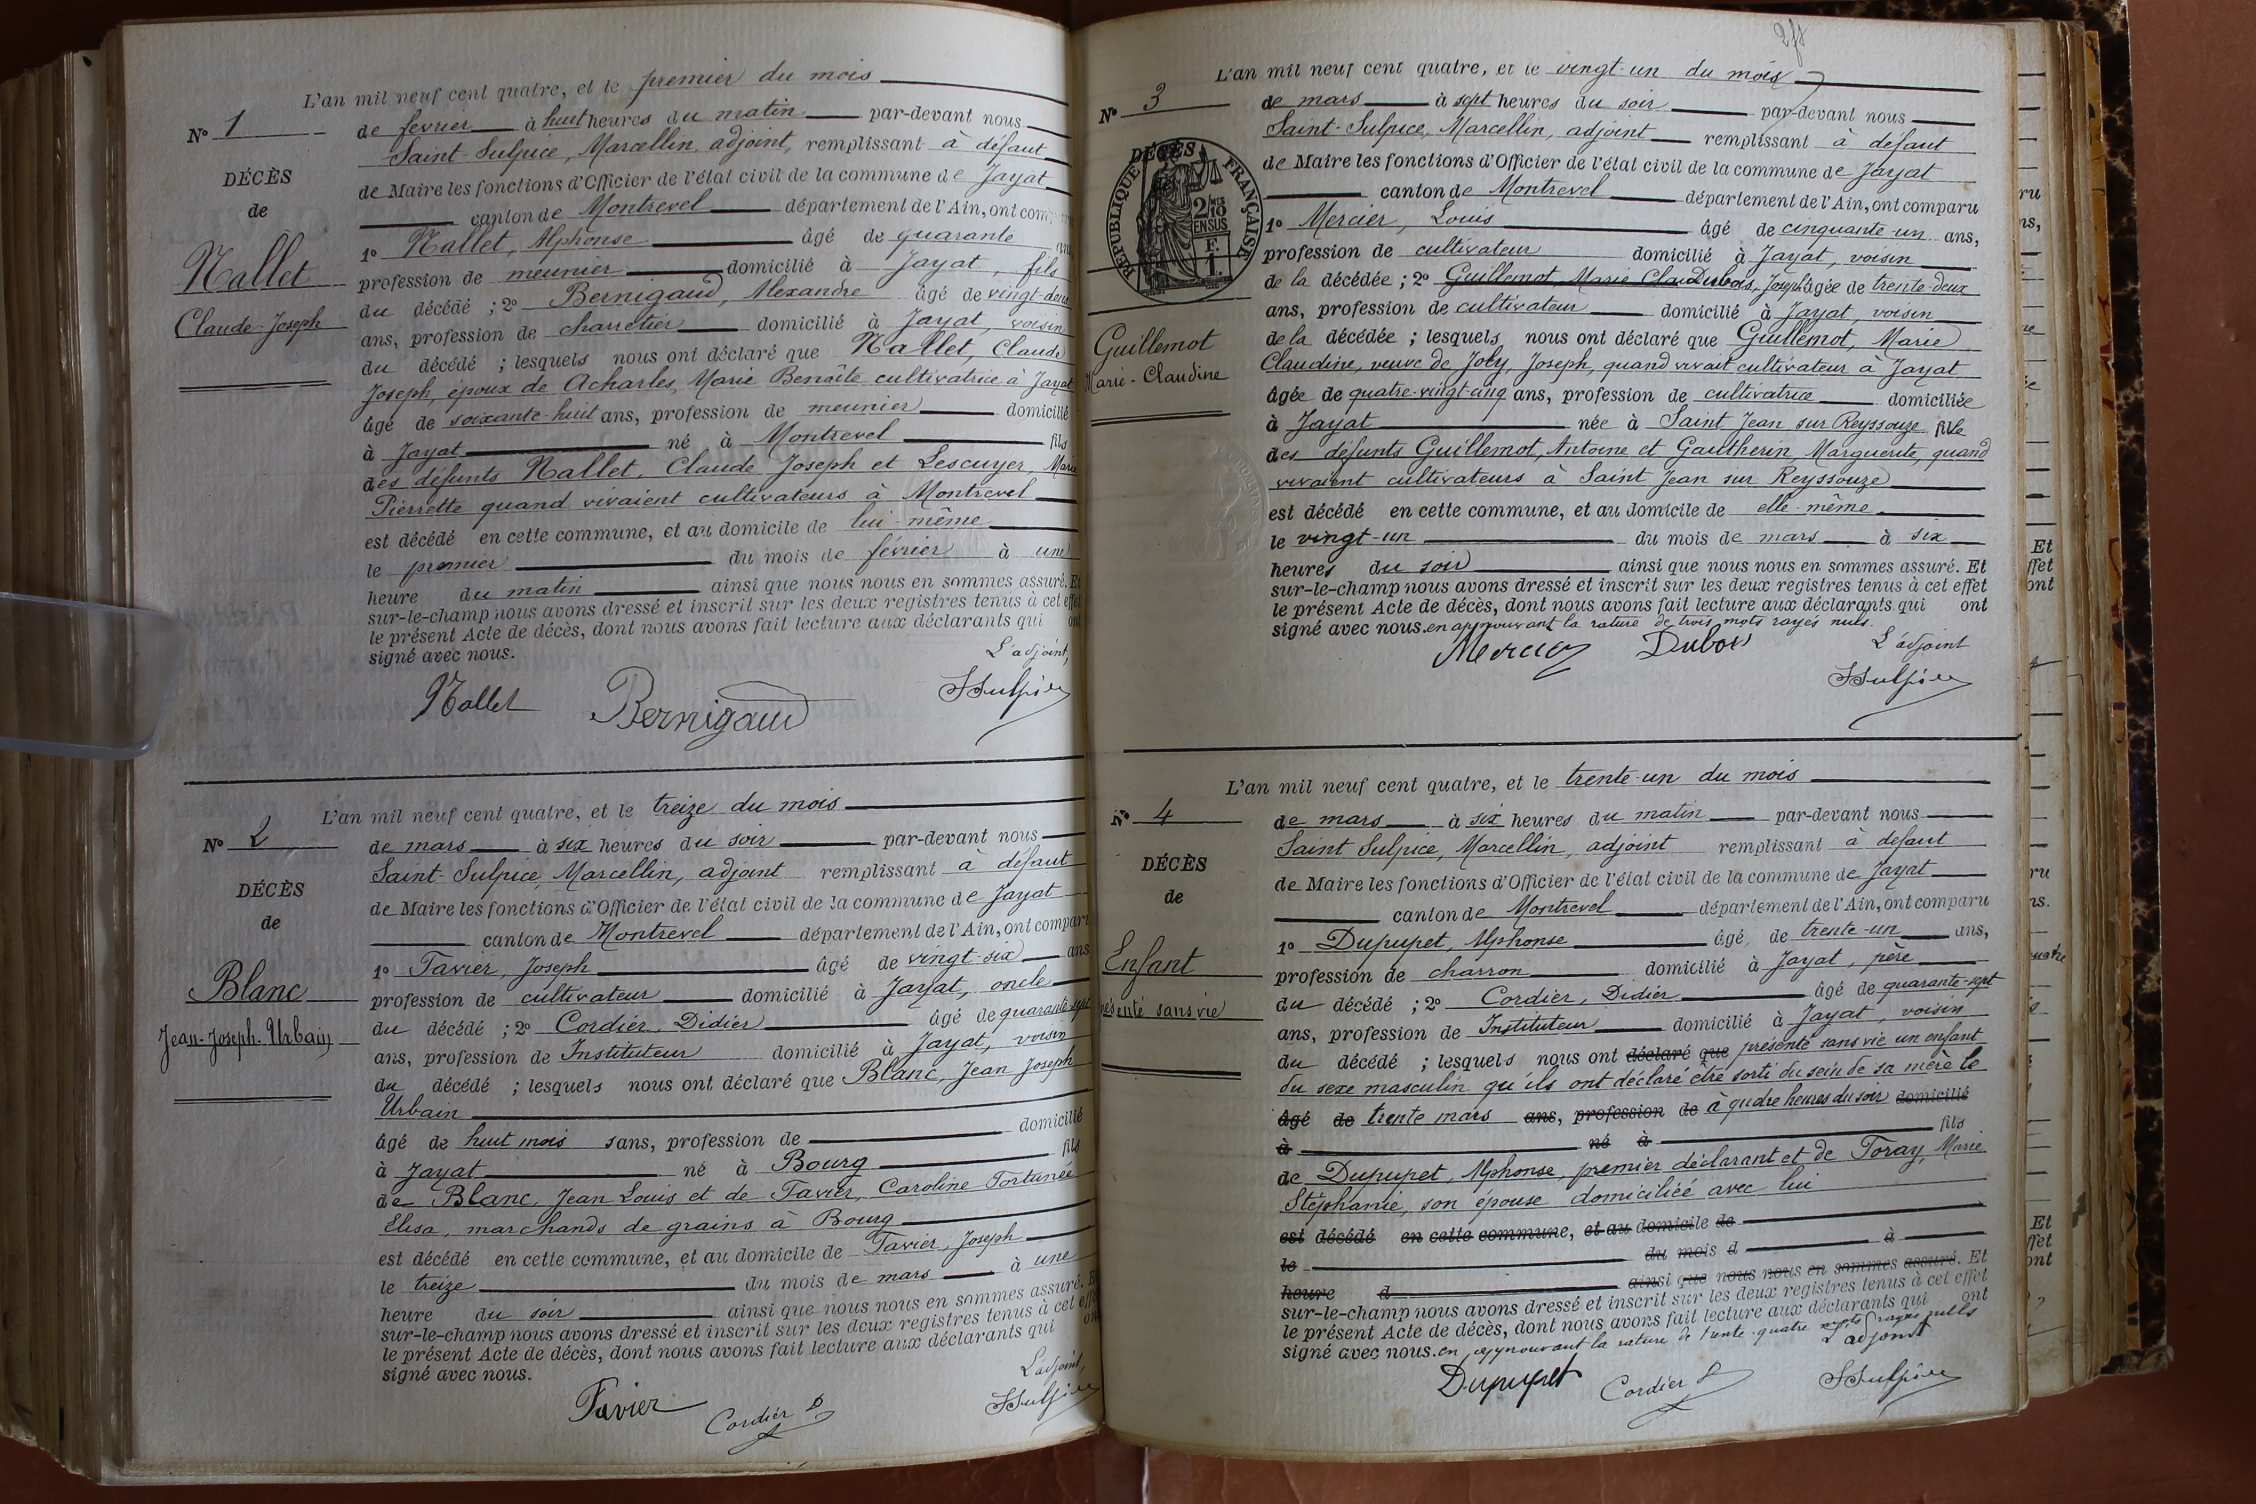 L'an mil neuf cent quatre, et le premier du mois
N° 1
de fevrier à huit heures du matin par-devant nous
Saint-Sulpice, Marcellin, adjoint, remplissant à défaut
DÉCÈS
de Maire les fonctions d'Officier de l'état civil de la commune de Jayat
de
canton de Montrevel département de l'Ain, ont comparu
1° Nallet, Alphonse âgé de quarante ans
Nallet
profession de meunier domicilié à Jayat, fils
du décédé ; 2° Bernigaud, Alexandre âgé de vingt-deux
Claude-Joseph
ans, profession de charretier domicilié à Jayat, voisin
du décédé ; lesquels nous ont déclaré que Nallet, Claude
Joseph, époux de Acharles, Marie Benoîte cultivatrice à Jayat
âgé de soixante-huit ans, profession de meunier domicilié
à Jayat né à Montrevel fils
des défunts Nallet, Claude Joseph et Lescuyer, Marie
Pierrette quand vivaient cultivateurs à Montrevel
est décédé en cette commune, et au domicile de lui-même
le premier du mois de février à une
heure du matin ainsi que nous nous en sommes assuré. Et
sur-le-champ nous avons dressé et inscrit sur les deux registres tenus à cet effet
le présent Acte de décès, dont nous avons fait lecture aux déclarants qui ont
signé avec nous.
L'adjoint,
Nallet Bernigaud SSulpice
L'an mil neuf cent quatre, et le treize du mois
N° 2
de mars à six heures du soir par-devant nous
Saint-Sulpice, Marcellin, adjoint remplissant à défaut
DÉCÈS
de Maire les fonctions d'Officier de l'état civil de la commune de Jayat
de
canton de Montrevel département de l'Ain, ont comparu
1° Favier, Joseph âgé de vingt-six ans
Blanc
profession de cultivateur domicilié à Jayat, oncle
du décédé ; 2° Cordier, Didier âgé de quarante-sept
Jean-Joseph-Urbain
ans, profession de Instituteur domicilié à Jayat, voisin
du décédé ; lesquels nous ont déclaré que Blanc, Jean Joseph
Urbain
âgé de huit mois sans, profession de domicilié
à Jayat né à Bourg fils
de Blanc, Jean Louis et de Favier, Caroline Fortunée
Elisa, marchands de grains à Bourg
est décédé en cette commune, et au domicile de Favier, Joseph
le treize du mois de mars à une
heure du soir ainsi que nous nous en sommes assuré. Et
sur-le-champ nous avons dressé et inscrit sur les deux registres tenus à cet effet
le présent Acte de décès, dont nous avons fait lecture aux déclarants qui ont
signé avec nous.
L'adjoint,
Favier Cordier D SSulpice
L'an mil neuf cent quatre, et le vingt-un du mois
N° 3
de mars à sept heures du soir par-devant nous
Saint-Sulpice, Marcellin, adjoint remplissant à défaut
DÉCÈS
RÉPUBLIQUE FRANÇAISE
2/10 EN SUS
F. 1.
de Maire les fonctions d'Officier de l'état civil de la commune de Jayat
canton de Montrevel département de l'Ain, ont comparu
1° Mercier, Louis âgé de cinquante-un ans,
profession de cultivateur domicilié à Jayat, voisin
de la décédée ; 2° Guillemot, Marie Clau Dubois, Joseph âgée de trente-deux
ans, profession de cultivateur domicilié à Jayat, voisin
Guillemot
de la décédée ; lesquels nous ont déclaré que Guillemot, Marie
Marie-Claudine
Claudine, veuve de Joly, Joseph, quand vivait cultivateur à Jayat
âgée de quatre-vingt-cinq ans, profession de cultivatrice domiciliée
à Jayat née à Saint Jean sur Reyssouze fille
des défunts Guillemot, Antoine et Gautherin, Marguerite, quand
vivaient cultivateurs à Saint Jean sur Reyssouze
est décédé en cette commune, et au domicile de elle-même
le vingt-un du mois de mars à six
heures du soir ainsi que nous nous en sommes assuré. Et
sur-le-champ nous avons dressé et inscrit sur les deux registres tenus à cet effet
le présent Acte de décès, dont nous avons fait lecture aux déclarants qui ont
signé avec nous. en approuvant la rature de trois mots rayés nuls.
L'adjoint
Mercier Dubois SSulpice
L'an mil neuf cent quatre, et le trente-un du mois
N° 4
de mars à six heures du matin par-devant nous
Saint Sulpice, Marcellin, adjoint remplissant à défaut
DÉCÈS
de Maire les fonctions d'Officier de l'état civil de la commune de Jayat
de
canton de Montrevel département de l'Ain, ont comparu
1° Dupupet, Alphonse âgé de trente-un ans,
Enfant
profession de charron domicilié à Jayat, père
présenté sans vie
du décédé ; 2° Cordier, Didier âgé de quarante-sept
ans, profession de Instituteur domicilié à Jayat, voisin
du décédé ; lesquels nous ont déclaré que présenté sans vie un enfant
du sexe masculin qu'ils ont déclaré être sorti du sein de sa mère le
âgé de trente mars ans, profession de à quatre heures du soir domicilié
à né à fils
de Dupupet, Alphonse, premier déclarant et de Foray, Marie
Stéphanie, son épouse domiciliée avec lui
est décédé en cette commune, et au domicile de
le du mois d à
heure d ainsi que nous nous en sommes assuré. Et
sur-le-champ nous avons dressé et inscrit sur les deux registres tenus à cet effet
le présent Acte de décès, dont nous avons fait lecture aux déclarants qui ont
signé avec nous. en approuvant la rature de trente-quatre mots rayés nuls
L'adjoint
Dupupet Cordier D SSulpice